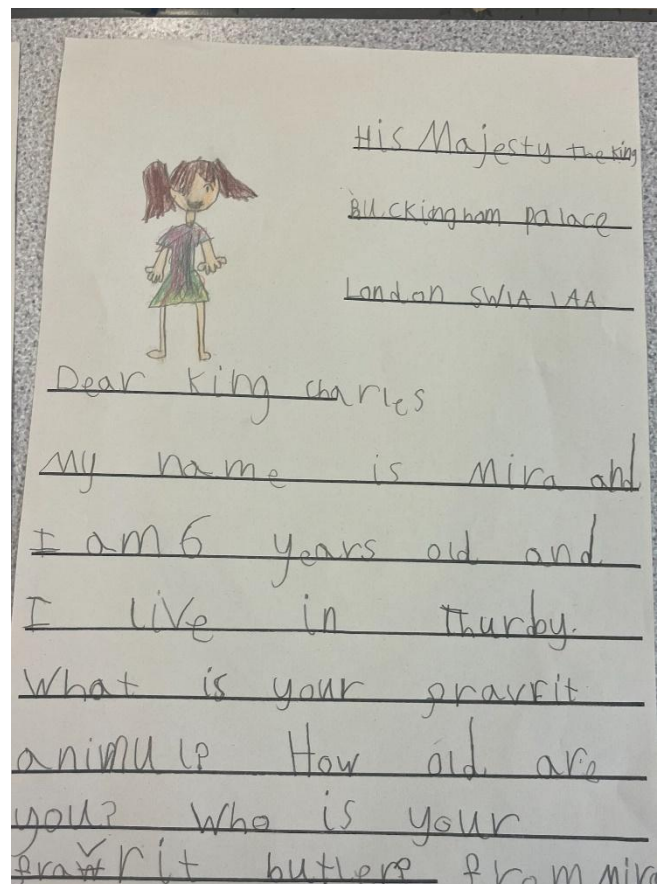 His Majesty the King
Buckingham palace
London SW1A 1AA
Dear King charles
My name is Mira and
I am 6 years old and
I live in Thurby.
What is your fravrit
animul? How old are
you? Who is your
fravrit butler? from Mira